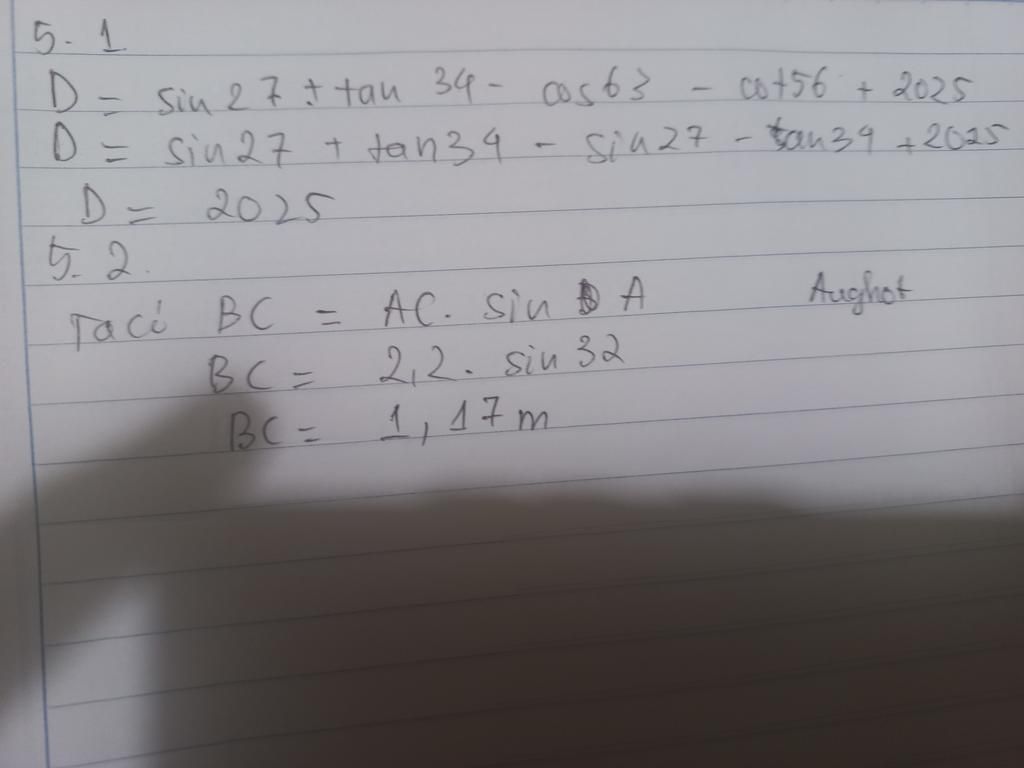 5.1
D = sin27 + tan 34 - cos63 - cot56 + 2025
D = sin27 + tan34 - sin27 - tan34 + 2025
D = 2025
5.2.
Ta có BC = AC. sin A
BC = 2,2. sin 32
BC = 1,17m